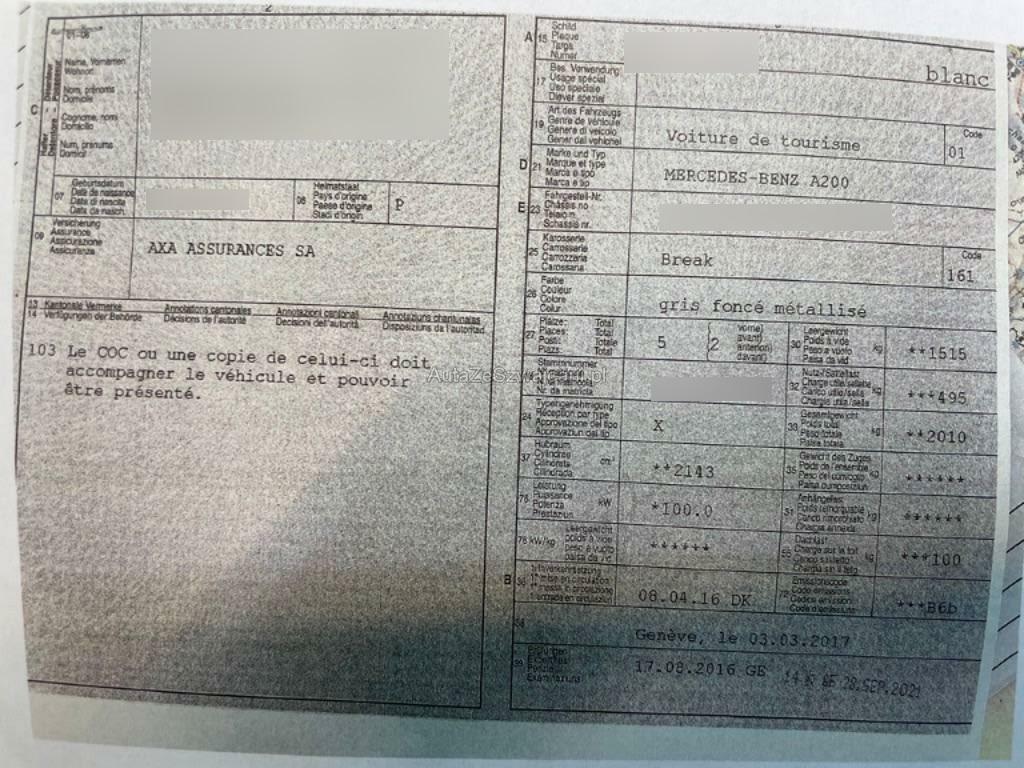 01-06
Name, Vornamen
Wohnort
Nom, prénoms
Domicile
C
Cognome, nomi
Domicilio
Num, prenums
Domicil
07
Geburtsdatum
Date de naissance
Data di nascita
Data da nasch.
08
Heimatstaat
Pays d'origine
Paese d'origine
Stadi d'origin
P
09
Versicherung
Assurance
Assicurazione
Assicuranza
AXA ASSURANCES SA
13 Kantonale Vermerke
14 Verfügungen der Behörde
Annotations cantonales
Décisions de l'autorité
Annotazioni cantonali
Decisioni dell'autorità
Annotaziuns chantunalas
Disposiziuns da l'autoritad
103 Le COC ou une copie de celui-ci doit
accompagner le véhicule et pouvoir
être présenté.
A 15
Schild
Plaque
Targa
Numer
blanc
17
Bes. Verwendung
Usage spécial
Uso speciale
Diever spezial
19
Art des Fahrzeugs
Genre de véhicule
Genere di veicolo
Gener dal vehichel
Voiture de tourisme
Code
01
D 21
Marke und Typ
Marque et type
Marca e tipo
Marca e tip
MERCEDES-BENZ A200
E 23
Fahrgestell-Nr.
Châssis no
Telaio n.
Schassis nr.
25
Karosserie
Carrosserie
Carrozzeria
Carossaria
Break
Code
161
26
Farbe
Couleur
Colore
Colur
gris foncé métallisé
27
Plätze: Total
Places: Total
Posti: Totale
Plazs: Total
5
2
vorne)
avant)
anteriori)
davant)
30
Leergewicht
Poids à vide
Peso a vuoto
Paisa da vid
kg
**1515
Stammnummer
N. matricola
Nr. da matricla
32
Nutz-/Sattellast
Charge utile/sellette
Carico utile/sella
Chargia utila/sella
kg
***495
24
Typengenehmigung
Réception par type
Approvazione del tipo
Approvaziun dal tip
X
33
Gesamtgewicht
Poids total
Peso totale
Paisa totala
kg
**2010
37
Hubraum
Cylindrée
Cilindrata
Cilindrada
cm³
**2143
35
Gewicht des Zuges
Poids de l'ensemble
Peso del convoglio
Paisa cumposiziun
kg
******
76
Leistung
Puissance
Potenza
Prestaziun
kW
*100.0
31
Anhängelast
Poids remorquable
Carico rimorchiato
Chargia annexa
kg
******
78 kW/kg
Leergewicht
poids à vide
peso a vuoto
paisa da vid
******
55
Dachlast
Charge sur le toit
Carico sul tetto
Chargia sin il tetg
kg
***100
B 36
1. Inverkehrsetzung
1re mise en circulation
1a messa in circolazione
08.04.16 DK
72
Emissionscode
Code émissions
Codice emissioni
Code d'emissiuns
***B6b
Genève, le 03.03.2017
39
Prüfungen
Expertises
Perizie
Examinaziuns
17.08.2016 GE
GE 28.SEP.2021